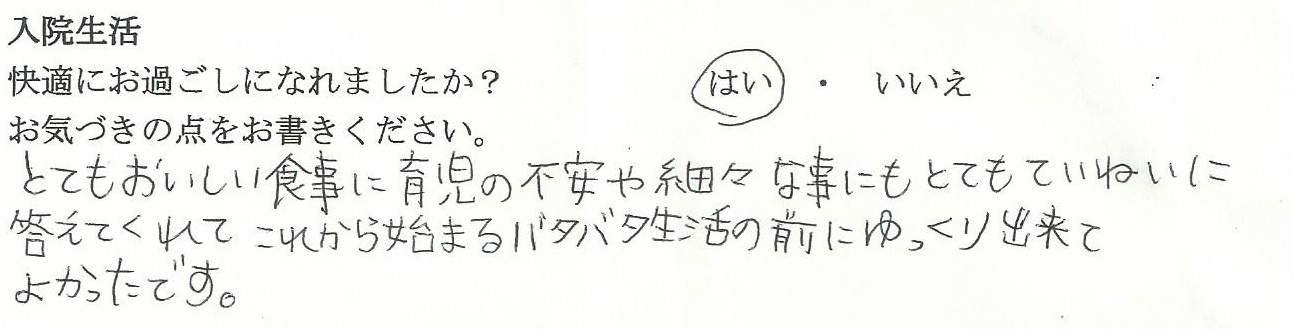 入院生活
快適にお過ごしになれましたか？　はい ・ いいえ
お気づきの点をお書きください。
とてもおいしい食事に育児の不安や細々な事にもとてもていねいに
答えてくれて これから始まるバタバタ生活の前にゆっくり出来て
よかったです。